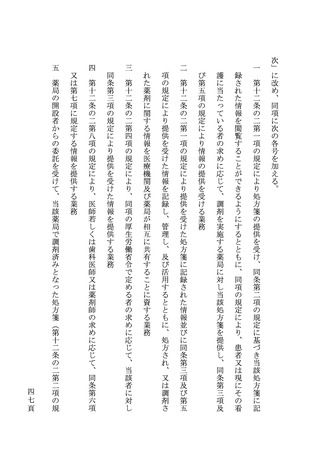 次」に改め、同項に次の各号を加える。
一　第十二条の二第一項の規定により処方箋の提供を受け、同条第二項の規定に基づき当該処方箋に記
録された情報を閲覧することができるようにするとともに、同項の規定により、患者又は現にその看
護に当たっている者の求めに応じて、調剤を実施する薬局に対し当該処方箋を提供し、同条第三項及
び第五項の規定により情報の提供を受ける業務
二　第十二条の二第一項の規定により提供を受けた処方箋に記録された情報並びに同条第三項及び第五
項の規定により提供を受けた情報を記録し、管理し、及び活用するとともに、処方され、又は調剤さ
れた薬剤に関する情報を医療機関及び薬局が相互に共有することに資する業務
三　第十二条の二第四項の規定により、同項の厚生労働省令で定める者の求めに応じて、当該者に対し
同条第三項の規定により提供を受けた情報を提供する業務
四　第十二条の二第八項の規定により、医師若しくは歯科医師又は薬剤師の求めに応じて、同条第六項
又は第七項に規定する情報を提供する業務
五　薬局の開設者からの委託を受けて、当該薬局で調剤済みとなった処方箋（第十二条の二第二項の規
四七頁